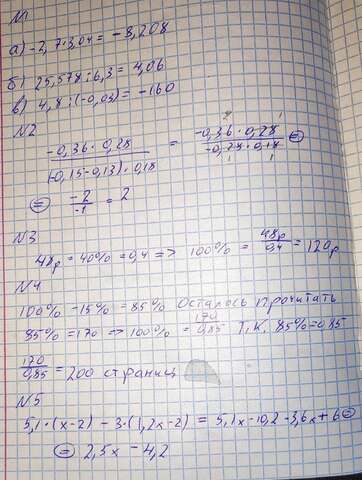 №1
а) -2,7·3,04 = -8,208
б) 25,578 : 6,3 = 4,06
в) 4,8 : (-0,03) = -160
№2
-0,36 · 0,28 / (-0,15-0,13) · 0,18 = -0,36 · 0,28 / -0,28 · 0,18 =
= -2/-1 = 2
№3
48р = 40% = 0,4 => 100% = 48р/0,4 = 120р
№4
100% - 15% = 85% осталось прочитать
85% = 170 => 100% = 170/0,85 т.к. 85% = 0,85
170/0,85 = 200 страниц
№5
5,1·(x-2) - 3·(1,2x-2) = 5,1x-10,2-3,6x+6 =
= 2,5x - 4,2